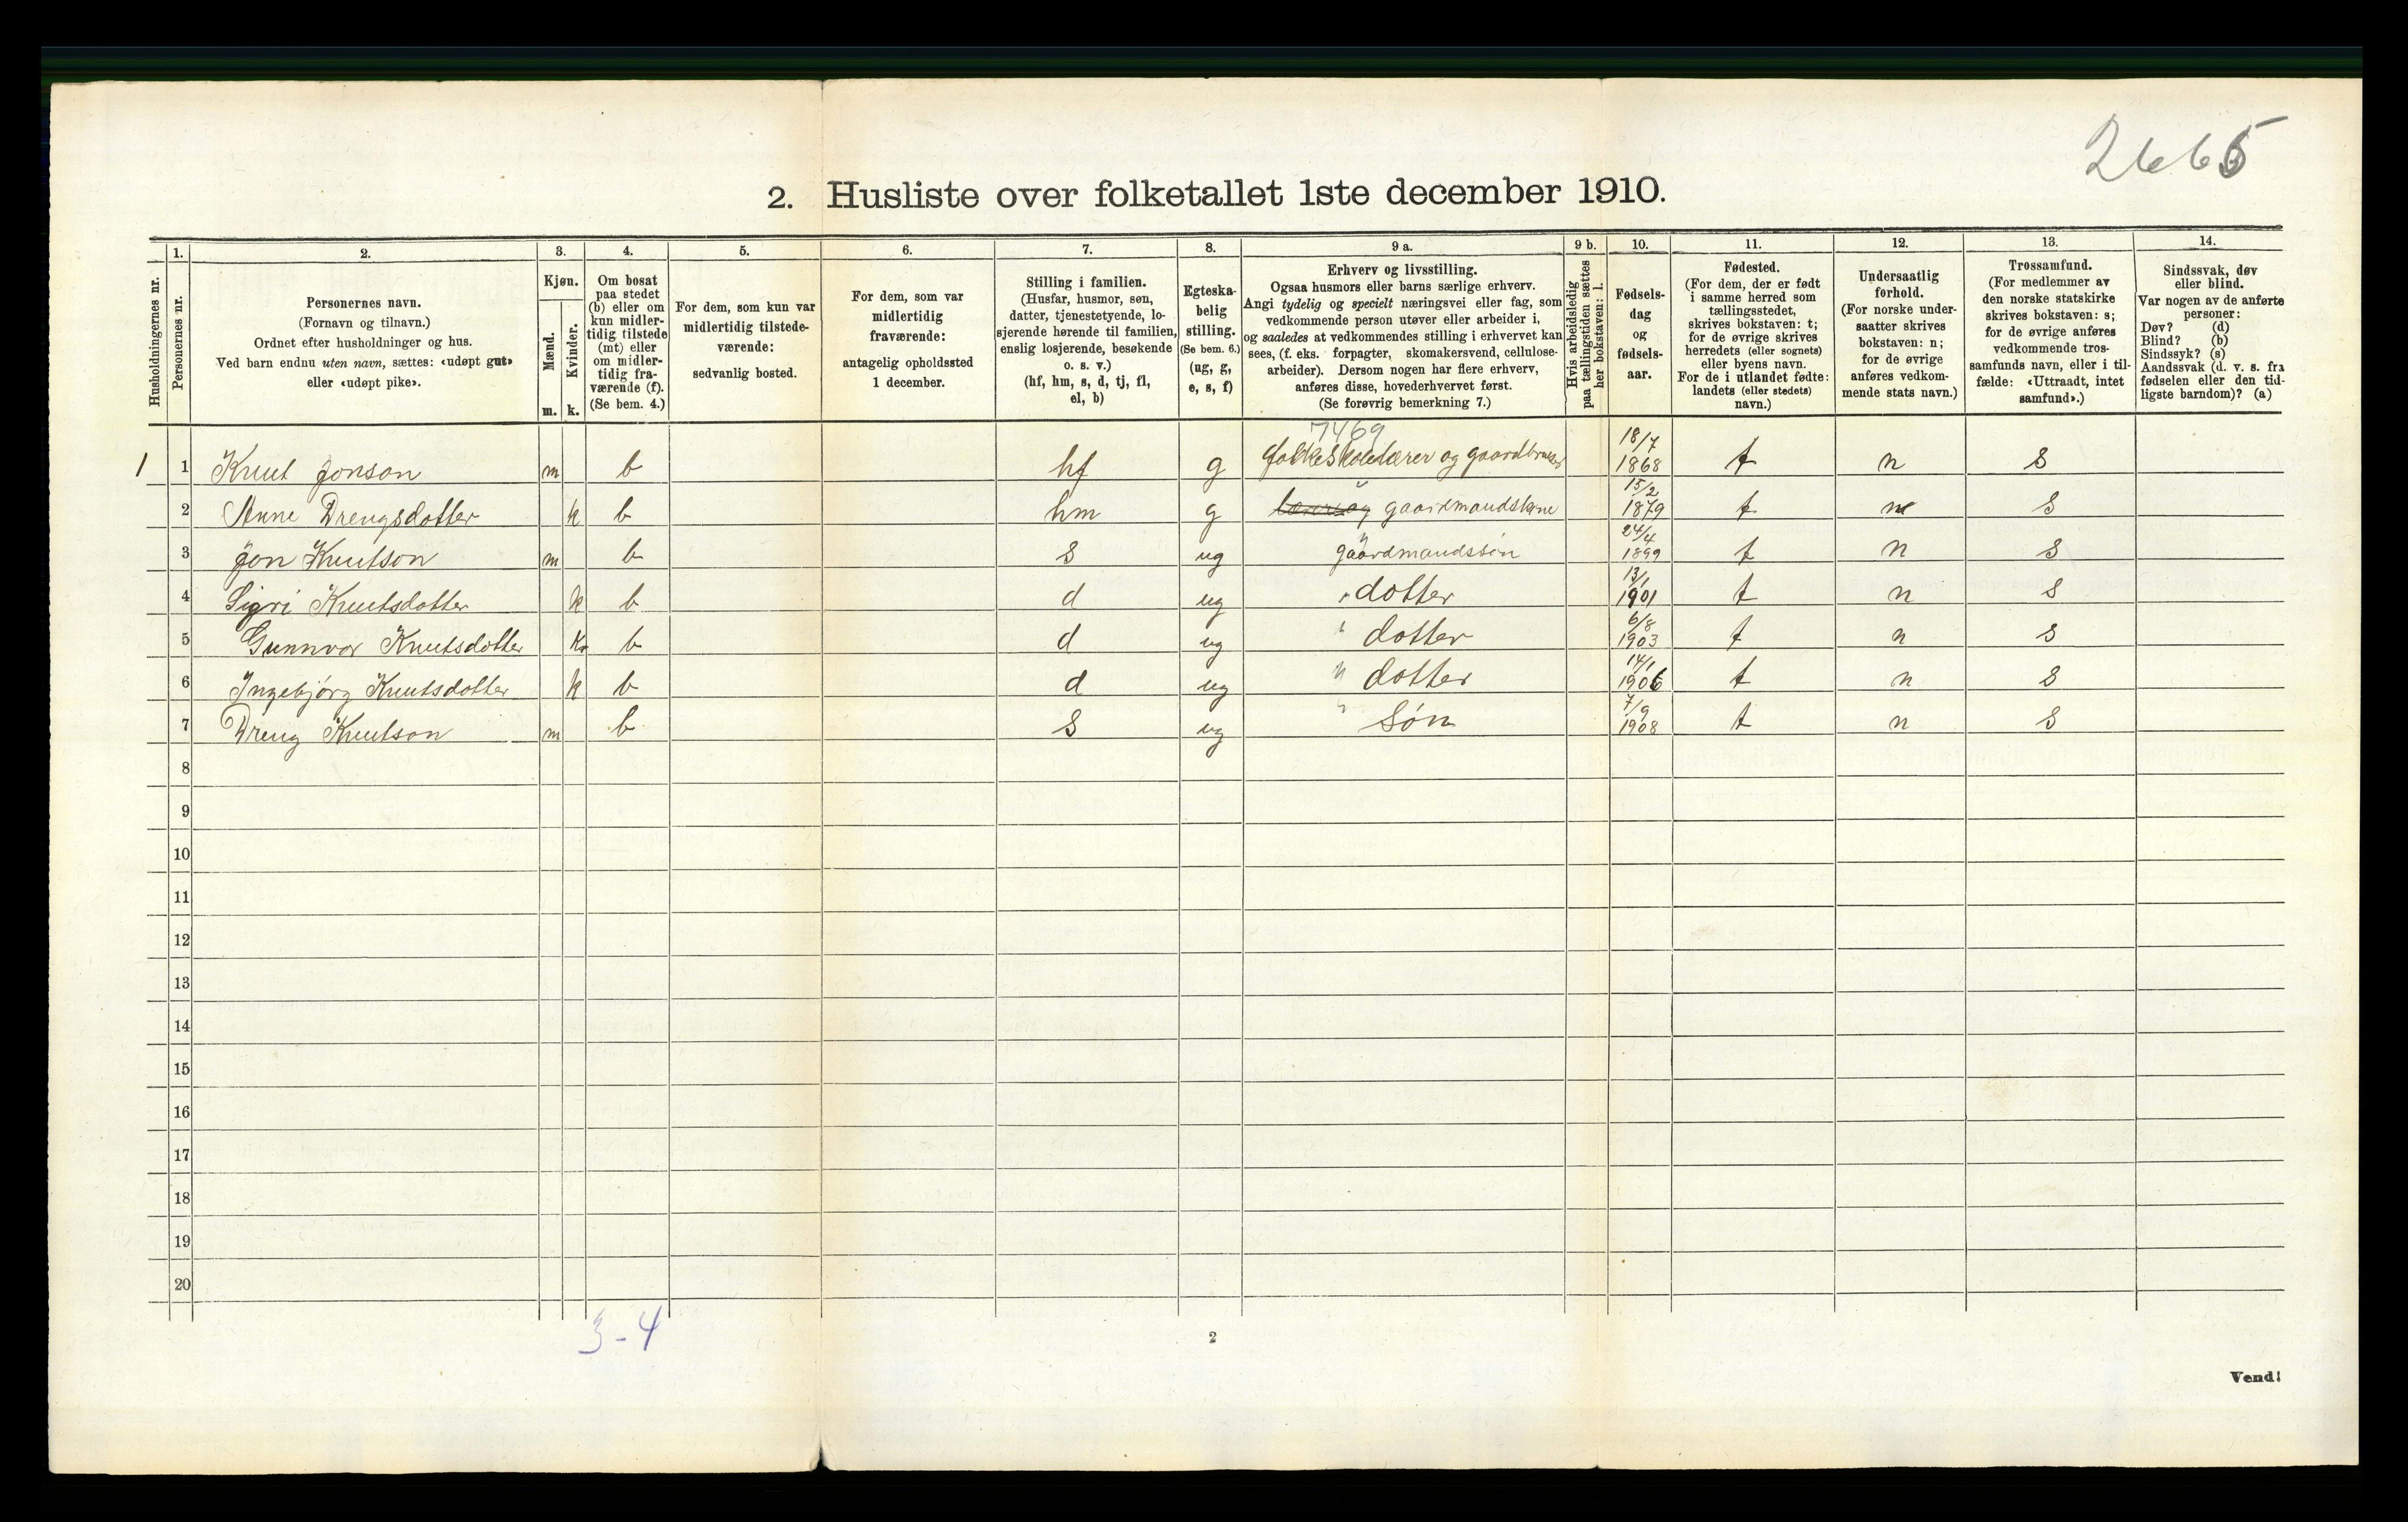 2665
2. Husliste over folketallet 1ste december 1910.
Husholdningernes nr.
1.
Personernes nr.
2.
Personernes navn.
(Fornavn og tilnavn.)
Ordnet efter husholdninger og hus.
Ved barn endnu uten navn, sættes: «udøpt gut»
eller «udøpt pike».
3.
Kjøn.
Mænd.
Kvinder.
m. k.
4.
Om bosat
paa stedet
(b) eller om
kun midler-
tidig tilstede
(mt) eller
om midler-
tidig fra-
værende (f).
(Se bem. 4.)
5.
For dem, som kun var
midlertidig tilstede-
værende:
sedvanlig bosted.
6.
For dem, som var
midlertidig
fraværende:
antagelig opholdssted
1 december.
7.
Stilling i familien.
(Husfar, husmor, søn,
datter, tjenestetyende, lo-
sjerende hørende til familien,
enslig losjerende, besøkende
o. s. v.)
(hf, hm, s, d, tj, fl,
el, b)
8.
Egteska-
belig
stilling.
(Se bem. 6.)
(ug, g,
e, s, f)
9 a.
Erhverv og livsstilling.
Ogsaa husmors eller barns særlige erhverv.
Angi tydelig og specielt næringsvei eller fag, som
vedkommende person utøver eller arbeider i,
og saaledes at vedkommendes stilling i erhvervet kan
sees, (f. eks. forpagter, skomakersvend, cellulose-
arbeider). Dersom nogen har flere erhverv,
anføres disse, hovederhvervet først.
(Se forøvrig bemerkning 7.)
9 b.
Hvis arbeidsledig
paa tællingstiden sættes
her bokstaven: l.
10.
Fødsels-
dag
og
fødsels-
aar.
11.
Fødested.
(For dem, der er født
i samme herred som
tællingsstedet,
skrives bokstaven: t;
for de øvrige skrives
herredets (eller sognets)
eller byens navn.
For de i utlandet fødte:
landets (eller stedets)
navn.)
12.
Undersaatlig
forhold.
(For norske under-
saatter skrives
bokstaven: n;
for de øvrige
anføres vedkom-
mende stats navn.)
13.
Trossamfund.
(For medlemmer av
den norske statskirke
skrives bokstaven: s;
for de øvrige anføres
vedkommende tros-
samfunds navn, eller i til-
fælde: «Uttraadt, intet
samfund».)
14.
Sindssvak, døv
eller blind.
Var nogen av de anførte
personer:
Døv? (d)
Blind? (b)
Sindssyk? (s)
Aandssvak (d. v. s. fra
fødselen eller den tid-
ligste barndom)? (a)
7469
1 1 Knut Jonson m b hf g folkeskolelærer og gaardbruker 18/7 1868 t n s
2 Anne Drengsdotter k b hm g gaardmandskone 15/2 1879 t n s
3 Jon Knutson m b s ug gaardmandssøn 24/4 1899 t n s
4 Sigri Knutsdotter k b d ug " dotter 13/1 1901 t n s
5 Gunnvor Knutsdotter k b d ug " dotter 6/8 1903 t n s
6 Ingebjørg Knutsdotter k b d ug " dotter 14/1 1906 t n s
7 Dreng Knutson m b s ug " søn 7/9 1908 t n s
8
9
10
11
12
13
14
15
16
17
18
19
20
3-4
2
Vend!